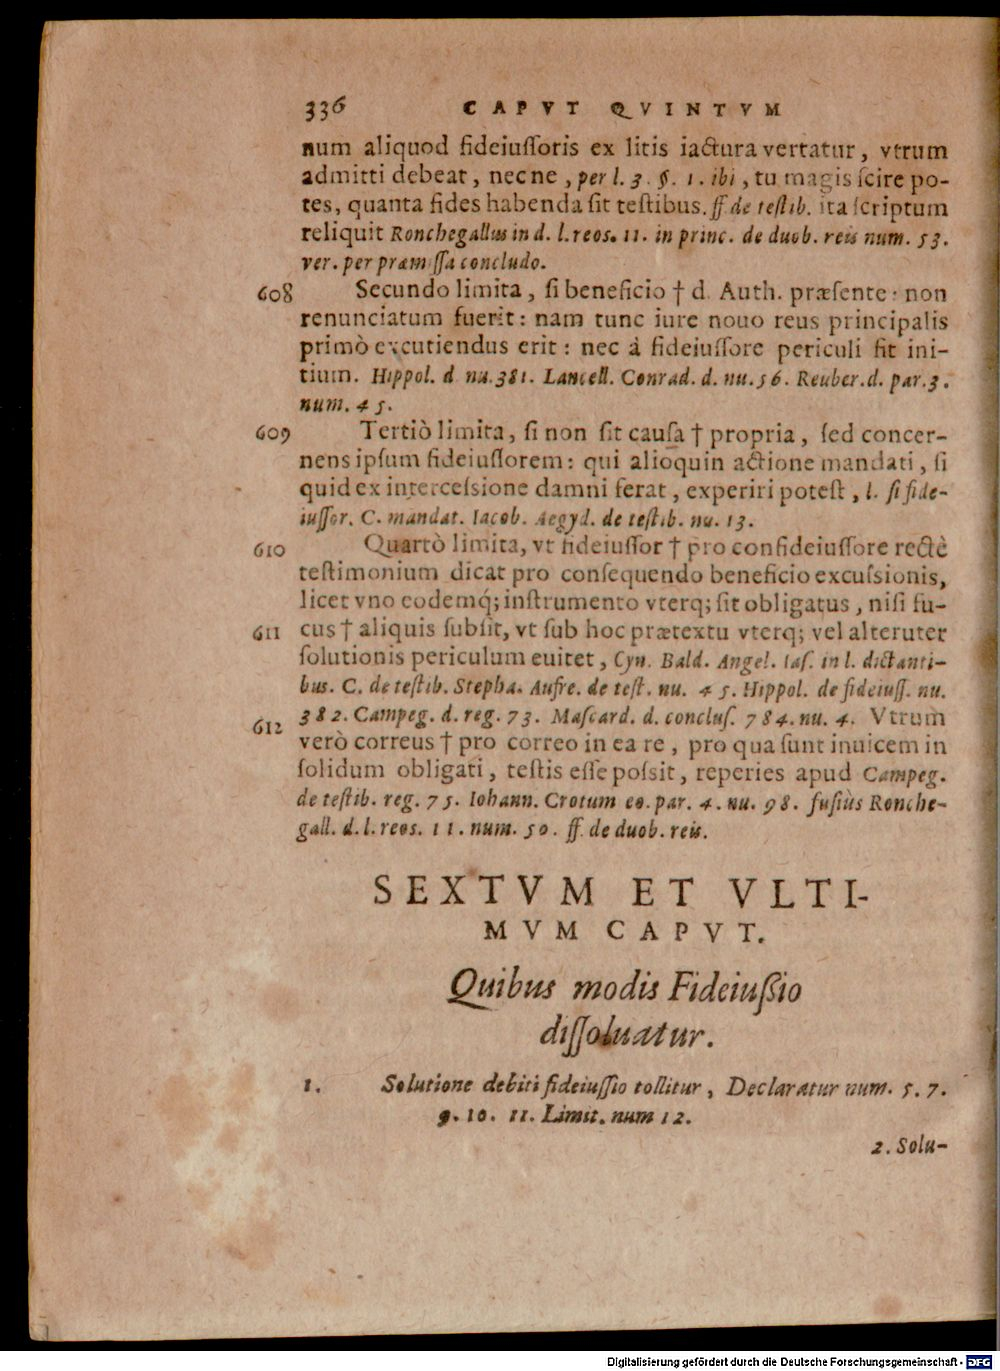 336 CAPVT QVINTVM
num aliquod fideiuſſoris ex litis iactura vertatur, vtrum
admitti debeat, necne, per l. 3. §. 1. ibi, tu magis ſcire po-
tes, quanta fides habenda ſit teſtibus. ff. de teſtib. ita ſcriptum
reliquit Ronchegallus in d. l. reos. 11. in princ. de duob. reis num. 53.
ver. per præmiſſa concludo.
608 Secundo limita, ſi beneficio † d. Auth. præſente: non
renunciatum fuerit: nam tunc iure nouo reus principalis
primò excutiendus erit: nec à fideiuſſore periculi fit ini-
tium. Hippol. d nu. 381. Lancell. Conrad. d. nu. 56. Reuber. d. par. 3.
num. 45.
609 Tertiò limita, ſi non ſit cauſa † propria, ſed concer-
nens ipſum fideiuſſorem: qui alioquin actione mandati, ſi
quid ex interceſsione damni ferat, experiri poteſt, l. ſi fide-
iuſſor. C. mandat. Iacob. Aegyd. de teſtib. nu. 13.
610 Quartò limita, vt fideiuſſor † pro confideiuſſore rectè
teſtimonium dicat pro conſequendo beneficio excuſsionis,
licet vno eodemq́; inſtrumento vterq; ſit obligatus, niſi fu-
611 cus † aliquis ſubſit, vt ſub hoc prætextu vterq; vel alteruter
ſolutionis periculum euitet, Cyn. Bald. Angel. Iaſ. in l. dictanti-
bus. C. de teſtib. Stepha. Aufre. de teſt. nu. 45. Hippol. de fideiuſſ. nu.
382. Campeg. d. reg. 73. Maſcard. d. concluſ. 784. nu. 4. Vtrum
612 verò correus † pro correo in ea re, pro qua ſunt inuicem in
ſolidum obligati, teſtis eſſe poſsit, reperies apud Campeg.
de teſtib. reg. 75. Iohann. Crotum eo. par. 4. nu. 98. fuſiùs Ronche-
gall. d. l. reos. 11. num. 50. ff. de duob. reis.
SEXTVM ET VLTI-
MVM CAPVT.
Quibus modis Fideiußio
diſſoluatur.
1. Solutione debiti fideiuſſio tollitur, Declaratur num. 5. 7.
9. 10. 11. Limit. num 12.
2. Solu-
Digitalisierung gefördert durch die Deutsche Forschungsgemeinschaft - DFG